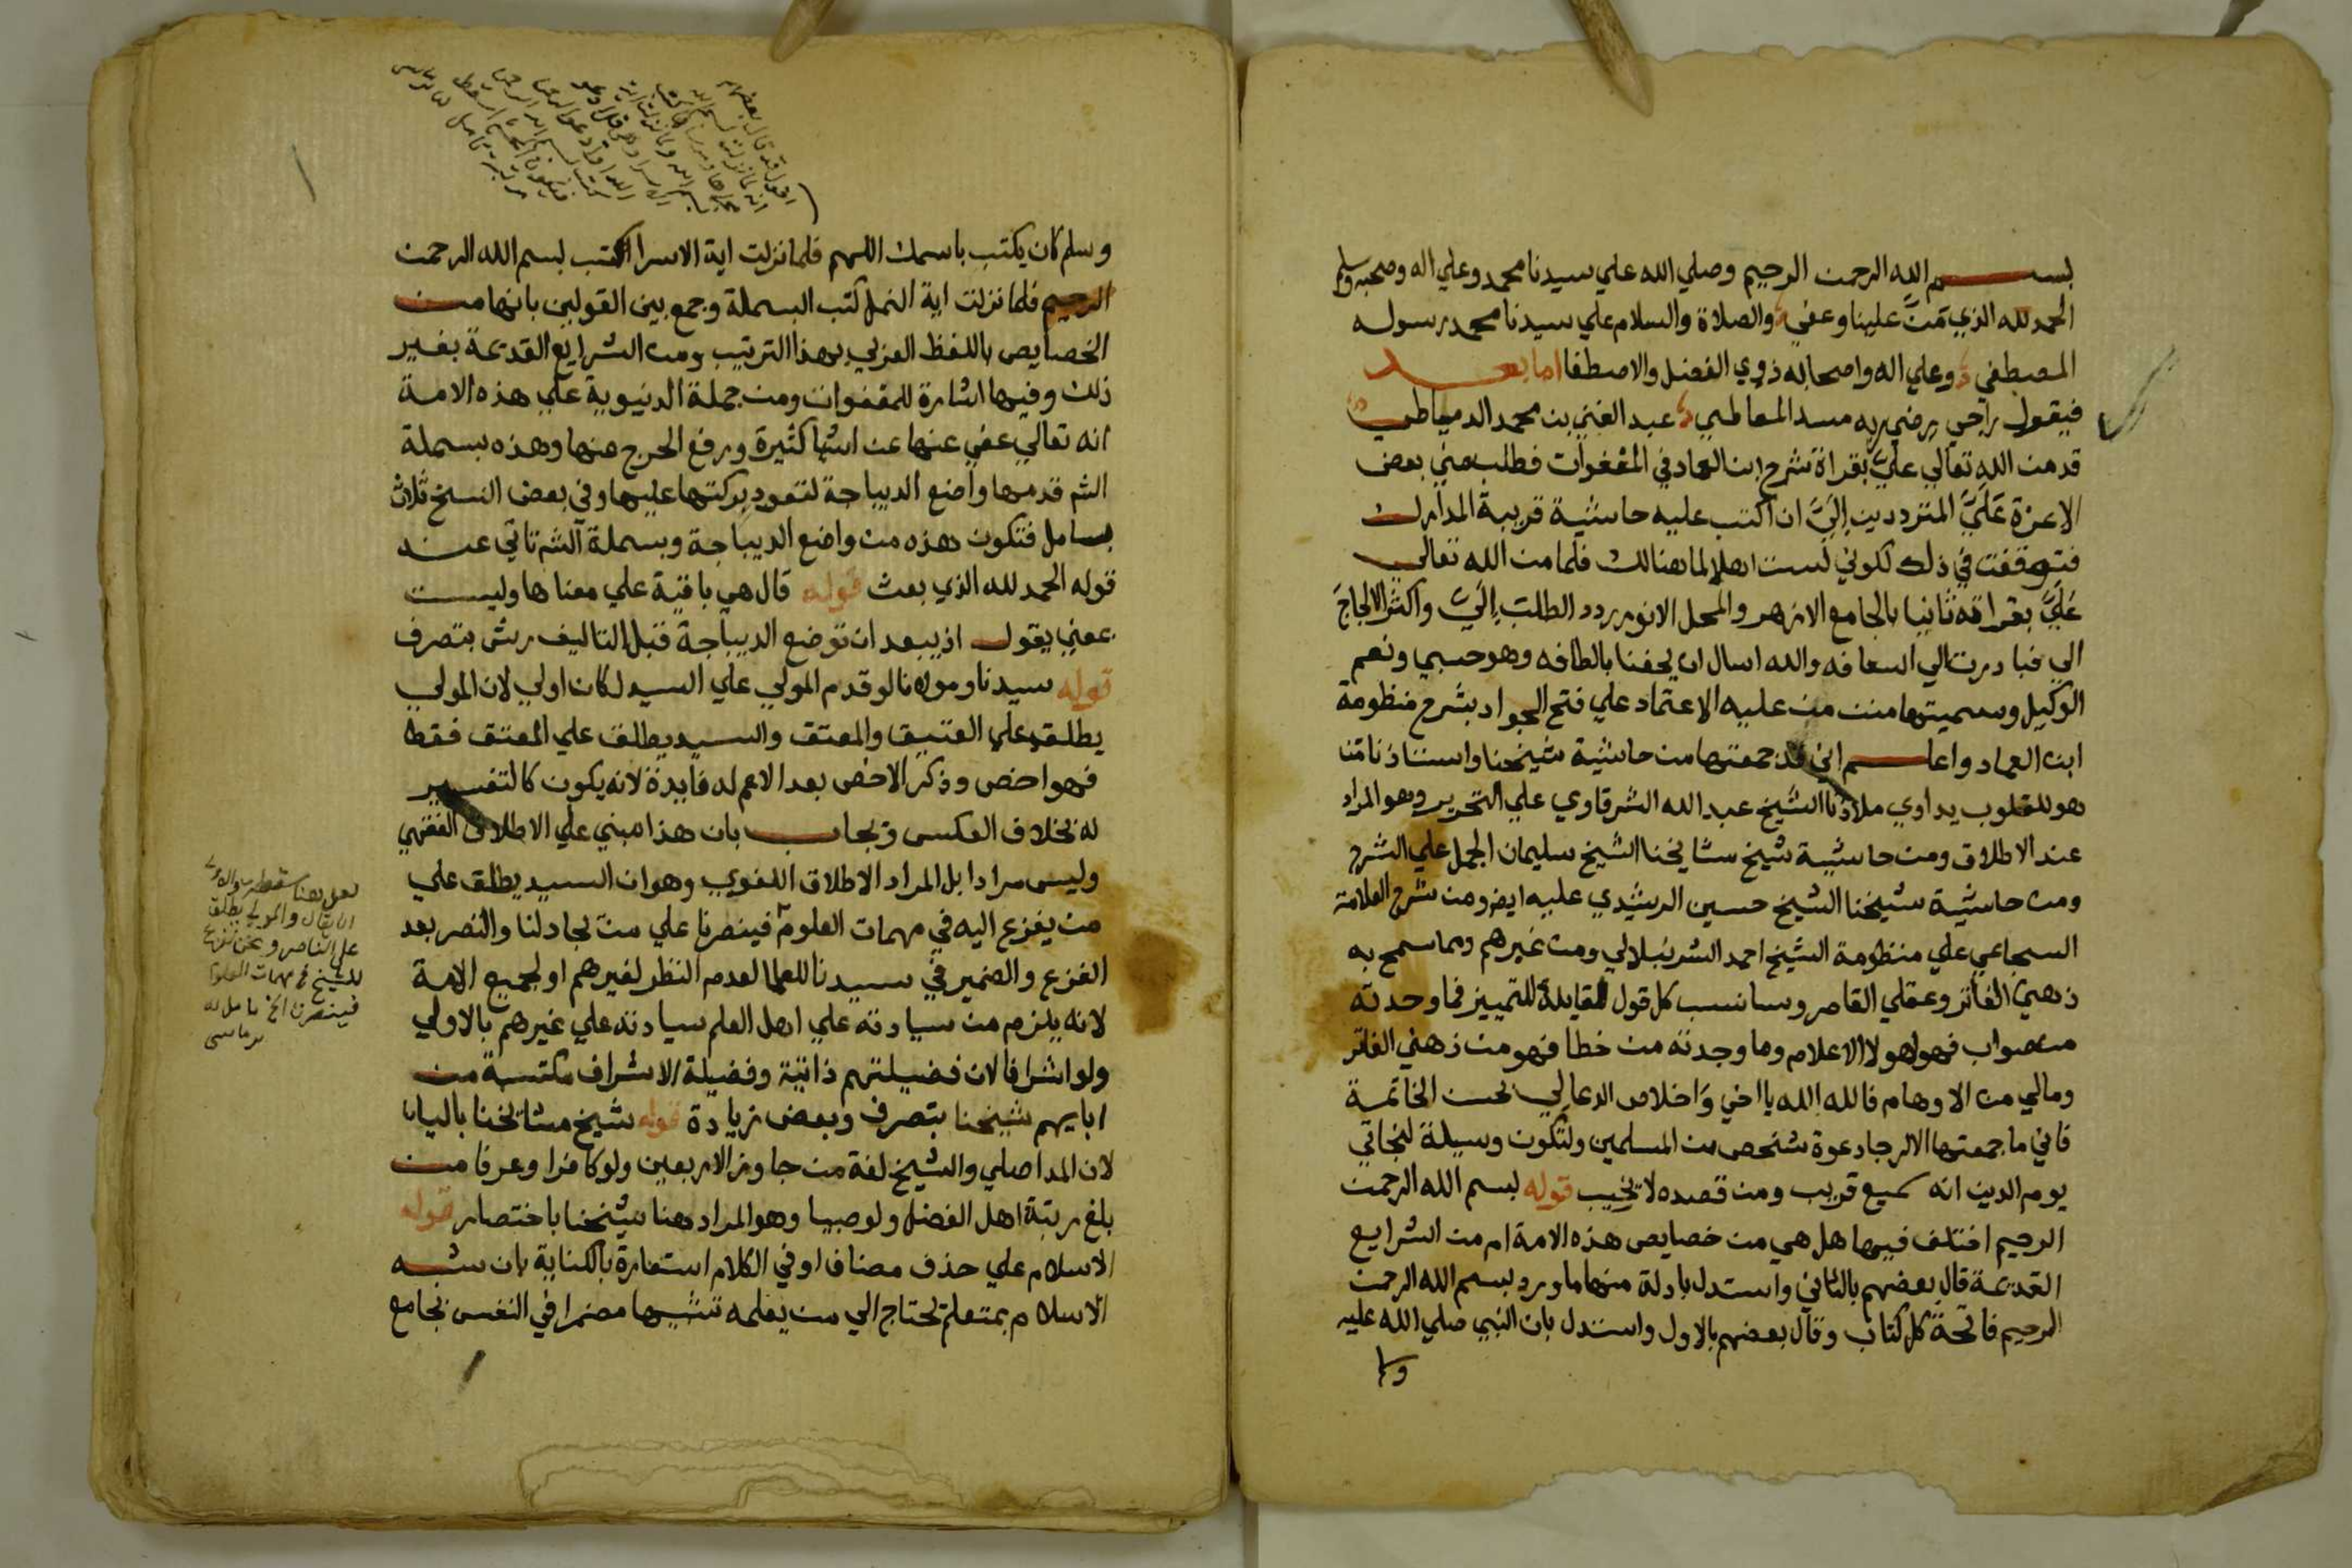 بسم الله الرحمن الرحيم وصلي الله علي سيدنا محمد وعلي اله وصحبه وسلم
الحمد لله الذي مَنَّ علينا وعفي والصلاة والسلام علي سيدنا محمد رسوله
المصطفي وعلي اله واصحابه ذوي الفضل والاصطفا اما بعد
فيقول راجي رضي ربه مسدا لمعاطبي عبد الغني بن محمد الدمياطي
قد من الله تعالي عليَّ بقراة شرح ابن العماد في المعفوات فطلب مني بعض
الاعزة عَلَيَّ المترددين إليَّ ان اكتب عليه حاشية قريبة المدارك
فتوقفت في ذلك لكوني لست اهلا لما هنالك فلما من الله تعالي
عَلَيَّ بقراته ثانيا بالجامع الازهر والمحل الانور ردد الطلب إلَيَّ واكثر الالجاج
الي فبادرت الي اسعافه والله اسال ان يحفنا بالطافه وهو حسبي ونعم
الوكيل وسميتها منن من عليه الاعتماد علي فتح الجواد بشرح منظومة
ابن العماد واعلم اني قد جمعتها من حاشية شيخنا واستاذنا من
هو للقلوب يداوي ملاذنا الشيخ عبد الله الشرقاوي علي التحرير وهو المراد
عند الاطلاق ومن حاشية شيخ مشايخنا الشيخ سليمان الجمل علي الشرح
ومن حاشية شيخنا الشيخ حسين الرشيدي عليه ايضا ومن شرح العلامة
السجاعي علي منظومة الشيخ احمد الشرنبلالي ومن غيرهم ومما سمح به
ذهني الفاتر وعقلي القاصر وسانسب كل قول لقايله للتمييز فما وجدته
من صواب فهو لهولا الاعلام وما وجدته من خطا فهو من ذهني الفاتر
ومالي من الاوهام فالله الله يا اخي وَاخلاص الدعا لي بحسن الخاتمة
فاني ما جمعتها الا لرجا دعوة شخص من المسلمين ولتكون وسيلة لنجاتي
يوم الدين انه سميع قريب ومن قصده لا يخيب قوله بسم الله الرحمن
الرحيم اختلف فيها هل هي من خصايص هذه الامة ام من الشرايع
القديمة قال بعضهم بالثاني واستدل بادلة منها ما ورد بسم الله الرحمن
الرحيم فاتحة كل كتاب وقال بعضهم بالاول واستدل بان النبي صلي الله عليه
وسلم كان يكتب باسمك اللهم فلما نزلت اية الاسرا كتب بسم الله الرحمن
الرحيم فلما نزلت اية النمل كتب البسملة وجمع بين القولين بانها من
الخصايص باللفظ العزبي بهذا الترتيب ومن الشرايع القديمة بغير
ذلك وفيها اشارة للمعفوات ومن جملة الدنيوية علي هذه الامة
انه تعالي عفي عنها عن اشيا كثيرة ورفع الحرج عنها وهذه بسملة
الشم قدمها واضع الديباجة لتعود بركتها عليها وفي بعض النسخ ثلاث
بسامل فتكون هذه من واضع الديباجة وبسملة الشم تاتي عند
قوله الحمد لله الذي بعث قوله قال هي باقية علي معناها وليست
بمعني يقول اذ يبعد ان توضع الديباجة قبل التاليف رش بتصرف
قوله سيدنا ومولانا لو قدم المولي علي السيد لكان اولي لان المولي
يطلق علي العتيق والمعتق والسيد يطلق علي المعتق فقط
فهو اخص وذكر الاخص بعد الاعم له فايدة لانه يكون كالتفسير
له بخلاف العكس ويجاب بان هذا مبني علي الاطلاق الفقهي
وليس مرادا بل المراد الاطلاق اللغوي وهو ان السيد يطلق علي
من يفزع اليه في مهمات العلوم فينصرنا علي من يجادلنا والنصر بعد
الفزع والضمير في سيدنا للعلما لعدم النظر لغيرهم او لجميع الامة
لانه يلزم من سيادته علي اهل العلم سيادته علي غيرهم بالاولي
ولو اشرافا لان فضيلتهم ذاتية وفضيلة الاشراف مكتسبة من
ابايهم شيخنا بتصرف وبعض زيادة قوله شيخ مشايخنا باليا
لان المد اصلي والشيخ لغة من جاوز الاربعين ولو كافرا وعرفا من
بلغ رتبة اهل الفضل ولو صبيا وهو المراد هنا شيخنا باختصار قوله
الاسلام علي حذف مضاف او في الكلام استعارة بالكناية بان شبه
الاسلام بمتعلم يحتاج الي من يعلمه تشبيها مضمرا في النفس بجامع
لعل هنا سقط
ان يقال والمولي يطلق
علي الناصر ونحن نفزع
للشيخ في مهمات العلوم
فينصرنا الخ تامل